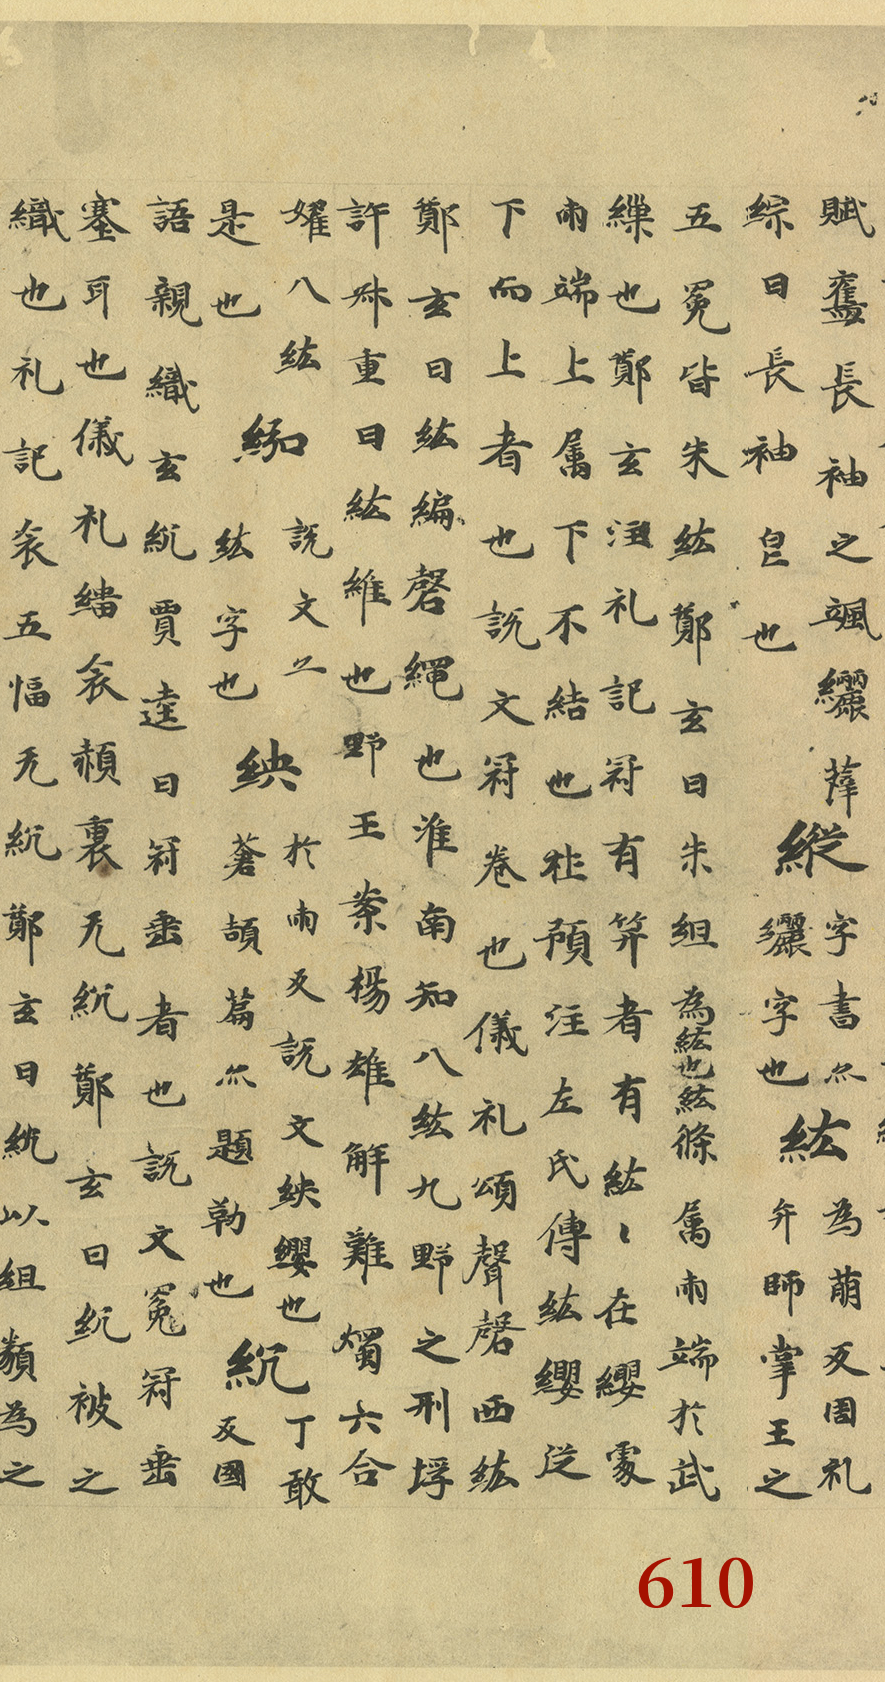 賦奮長袖之颯纚薩縰字書尒紘為萌反周礼
綜曰長袖皃也纚字也弁師掌王之
五冕皆朱紘鄭玄曰朱組為紘也紘條属兩端於武
繅也鄭玄注礼記冠有笄者有紘〻在纓處
兩端上属下不結也杜預注左氏傳紘纓從
下而上者也說文冠卷也儀礼頌聲磬西紘
鄭玄曰紘編磬繩也淮南知八紘九野之刑埒
許叔重曰紘維也野王案楊雄解難燭六合
燿八紘說文紻於兩反說文紻纓也紞丁敢
是也紘字也蒼頡篇尒題勒也反國
語親織玄紞賈逵曰冠垂者也說文冕冠垂
塞耳也儀礼緇衾赬裏无紞鄭玄曰紞被之
織也礼記衾五幅无紞鄭玄曰紞以組類為之
610